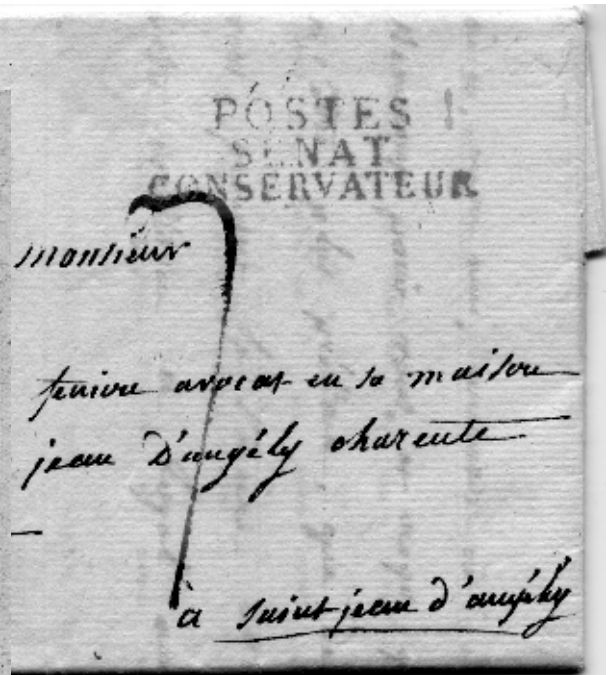 POSTES
SENAT
CONSERVATEUR
7
monsieur
avocat en sa maison
jean D'angély charente
à saint jean d'angély